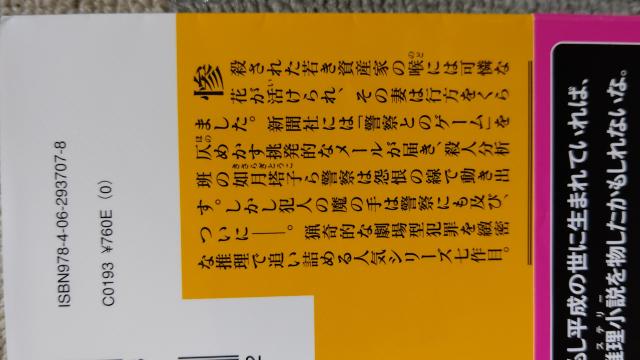 惨殺された若き資産家の喉には可憐な
花が活けられ、その妻は行方をくら
ました。新聞社には「警察とのゲーム」を
仄めかす挑発的なメールが届き、殺人分析
班の如月塔子ら警察は怨恨の線で動き出
す。しかし犯人の魔の手は警察にも及び、
ついに――。猟奇的な劇場型犯罪を緻密
な推理で追い詰める人気シリーズ七作目。
ISBN978-4-06-293707-8
C0193 ¥760E (0)
もし平成の世に生まれていれば、
推理小説を物したかもしれないな。